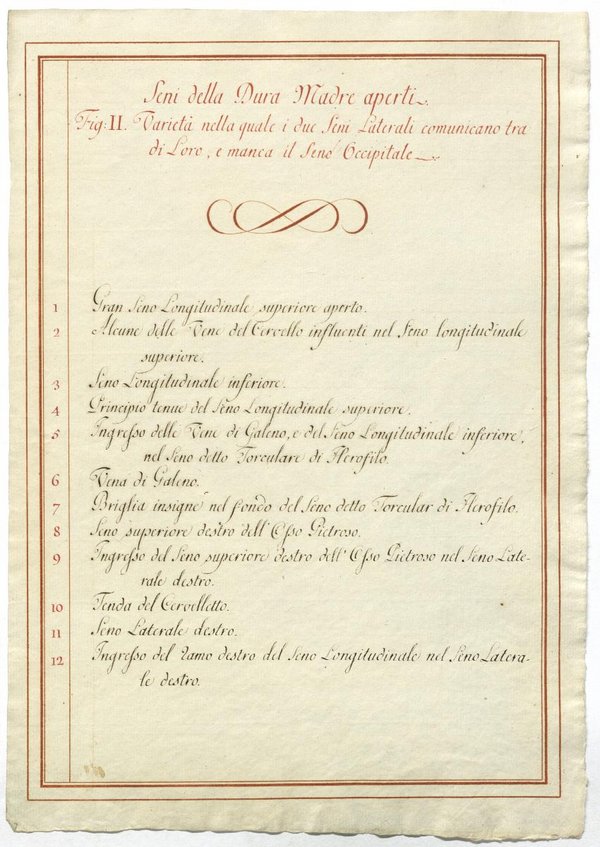 Seni della Dura Madre aperti.
Fig: II. Varietà nella quale i due Seni Laterali comunicano tra
di Loro, e manca il Seno Occipitale.
1 Gran Seno Longitudinale superiore aperto.
2 Alcune delle Vene del Cervello influenti nel Seno longitudinale
superiore.
3 Seno Longitudinale inferiore.
4 Principio tenue del Seno Longitudinale superiore.
5 Ingresso delle Vene di Galeno, e del Seno Longitudinale inferiore,
nel Seno detto Torculare di Herofilo.
6 Vena di Galeno.
7 Briglia insigne nel fondo del Seno detto Torcular di Herofilo.
8 Seno superiore destro dell' Osso Pietroso.
9 Ingresso del Seno superiore destro dell' Osso Pietroso nel Seno Late-
rale destro.
10 Tenda del Cervelletto.
11 Seno Laterale destro.
12 Ingresso del ramo destro del Seno Longitudinale nel Seno Latera-
le destro.